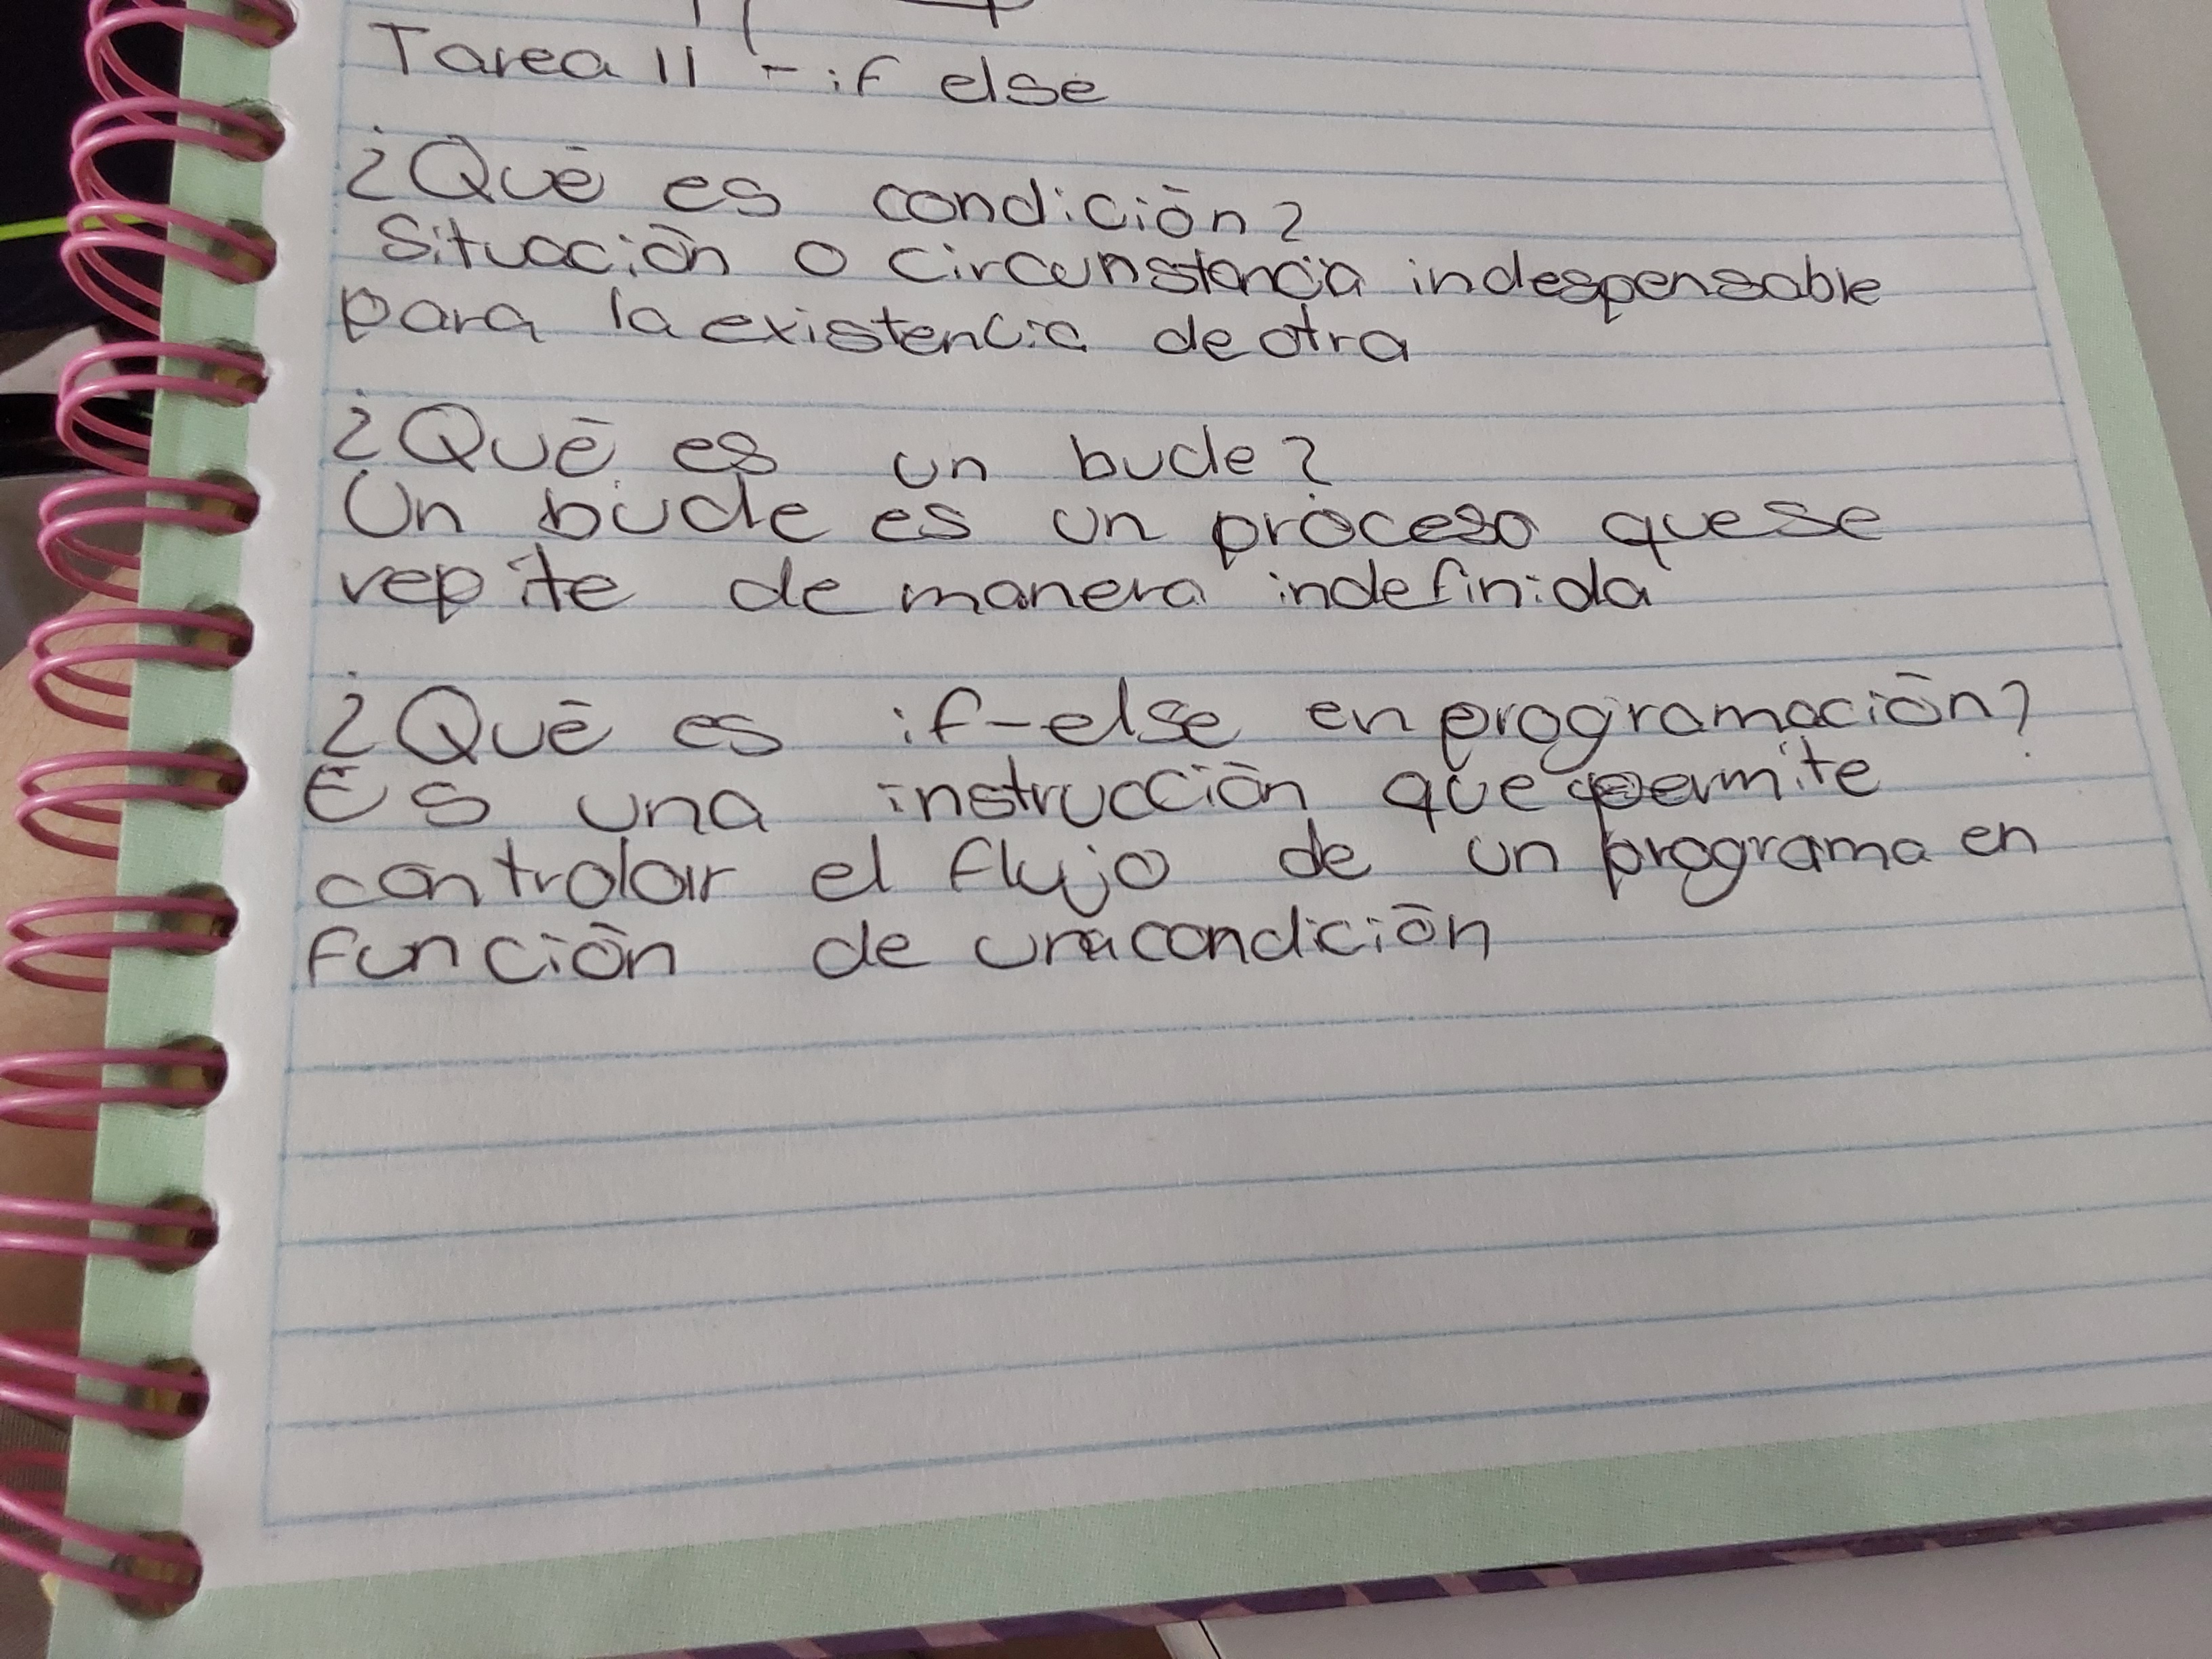 Tarea 11 - if else
¿Qué es condición?
Situación o circunstancia indespensable
para la existencia de otra
¿Qué es un bucle?
Un bucle es un proceso que se
repite de manera indefinida
¿Qué es if-else en programación?
Es una instrucción que permite
controlar el flujo de un programa en
función de una condición